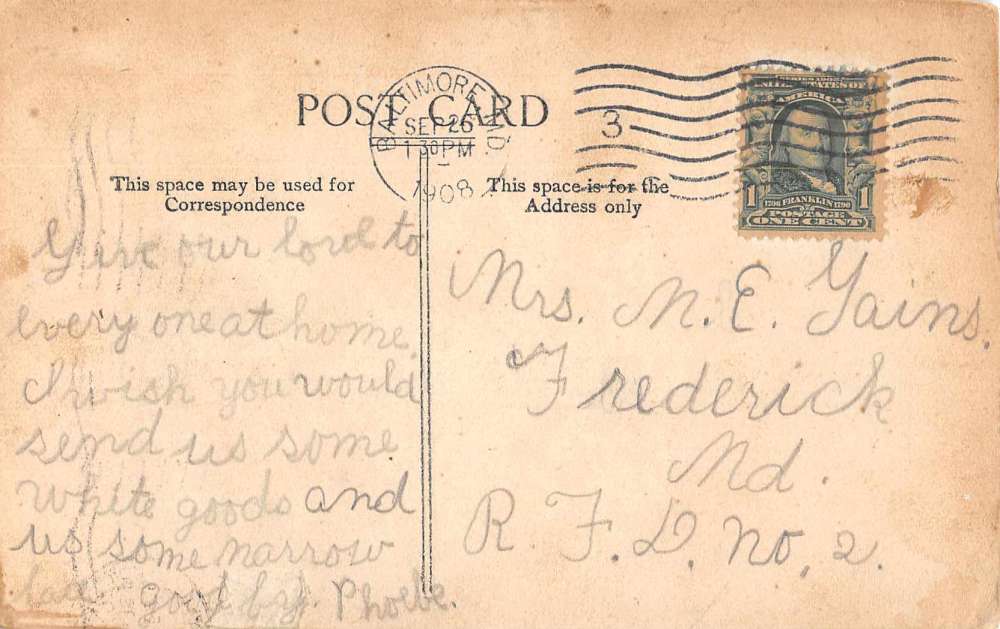 POST CARD
BALTIMORE MD
SEP 26
1 30 PM
1908
3
UNITED STATES OF
AMERICA
1706 FRANKLIN 1790
1 1
POSTAGE
ONE CENT
This space may be used for
Correspondence
This space is for the
Address only
Give our lord to
every one at home.
I wish you would
send us some
white goods and
us some narrow
lace good by. Phoebe.
Mrs. M. E. Gains.
Frederick
Md.
R. F. D. No, 2.